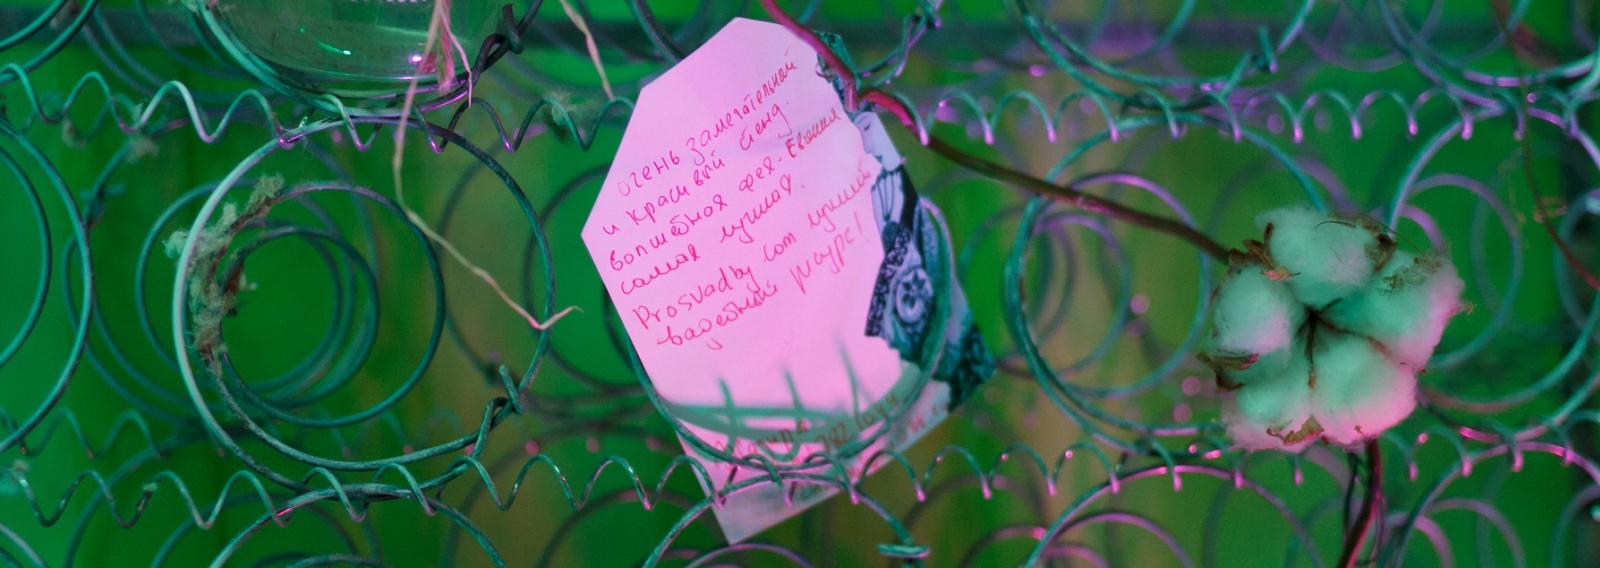 очень замечательной
и красивой стенд.
волшебная фея - Евгения
самая лучшая.
Prosvadby.com лучший
свадебный ресурс!